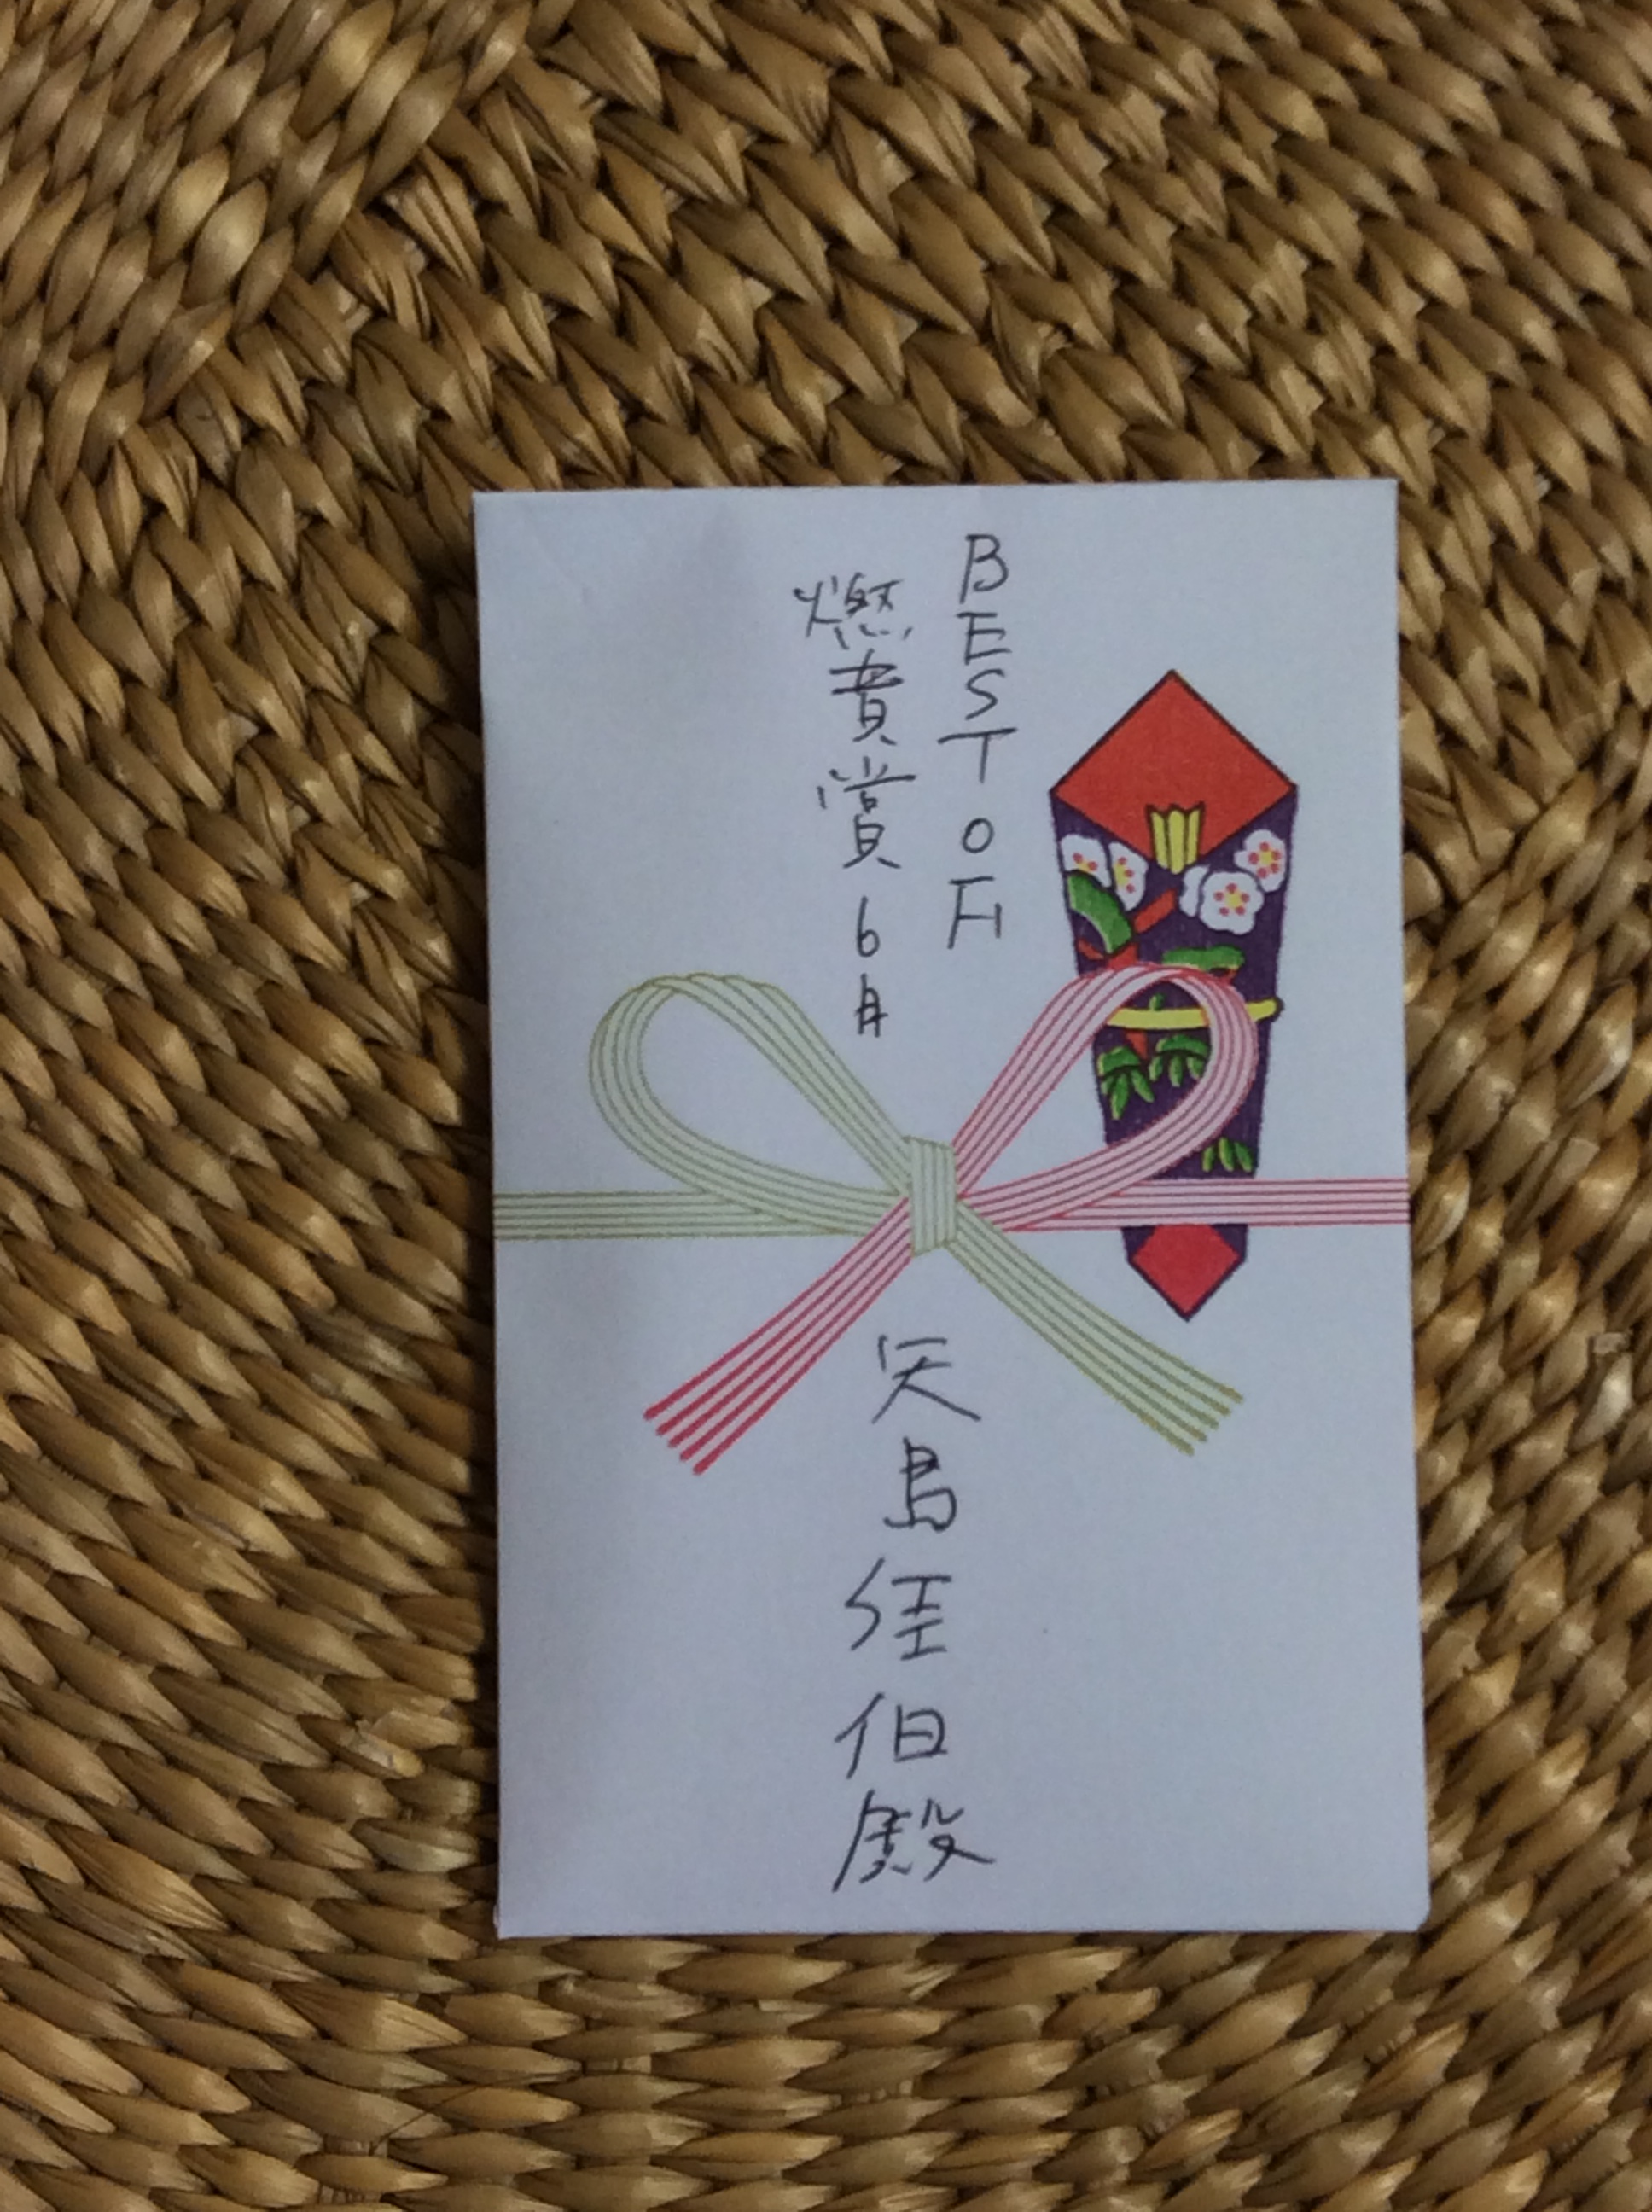 BEST OF
燃費賞 6月
矢島経伯殿